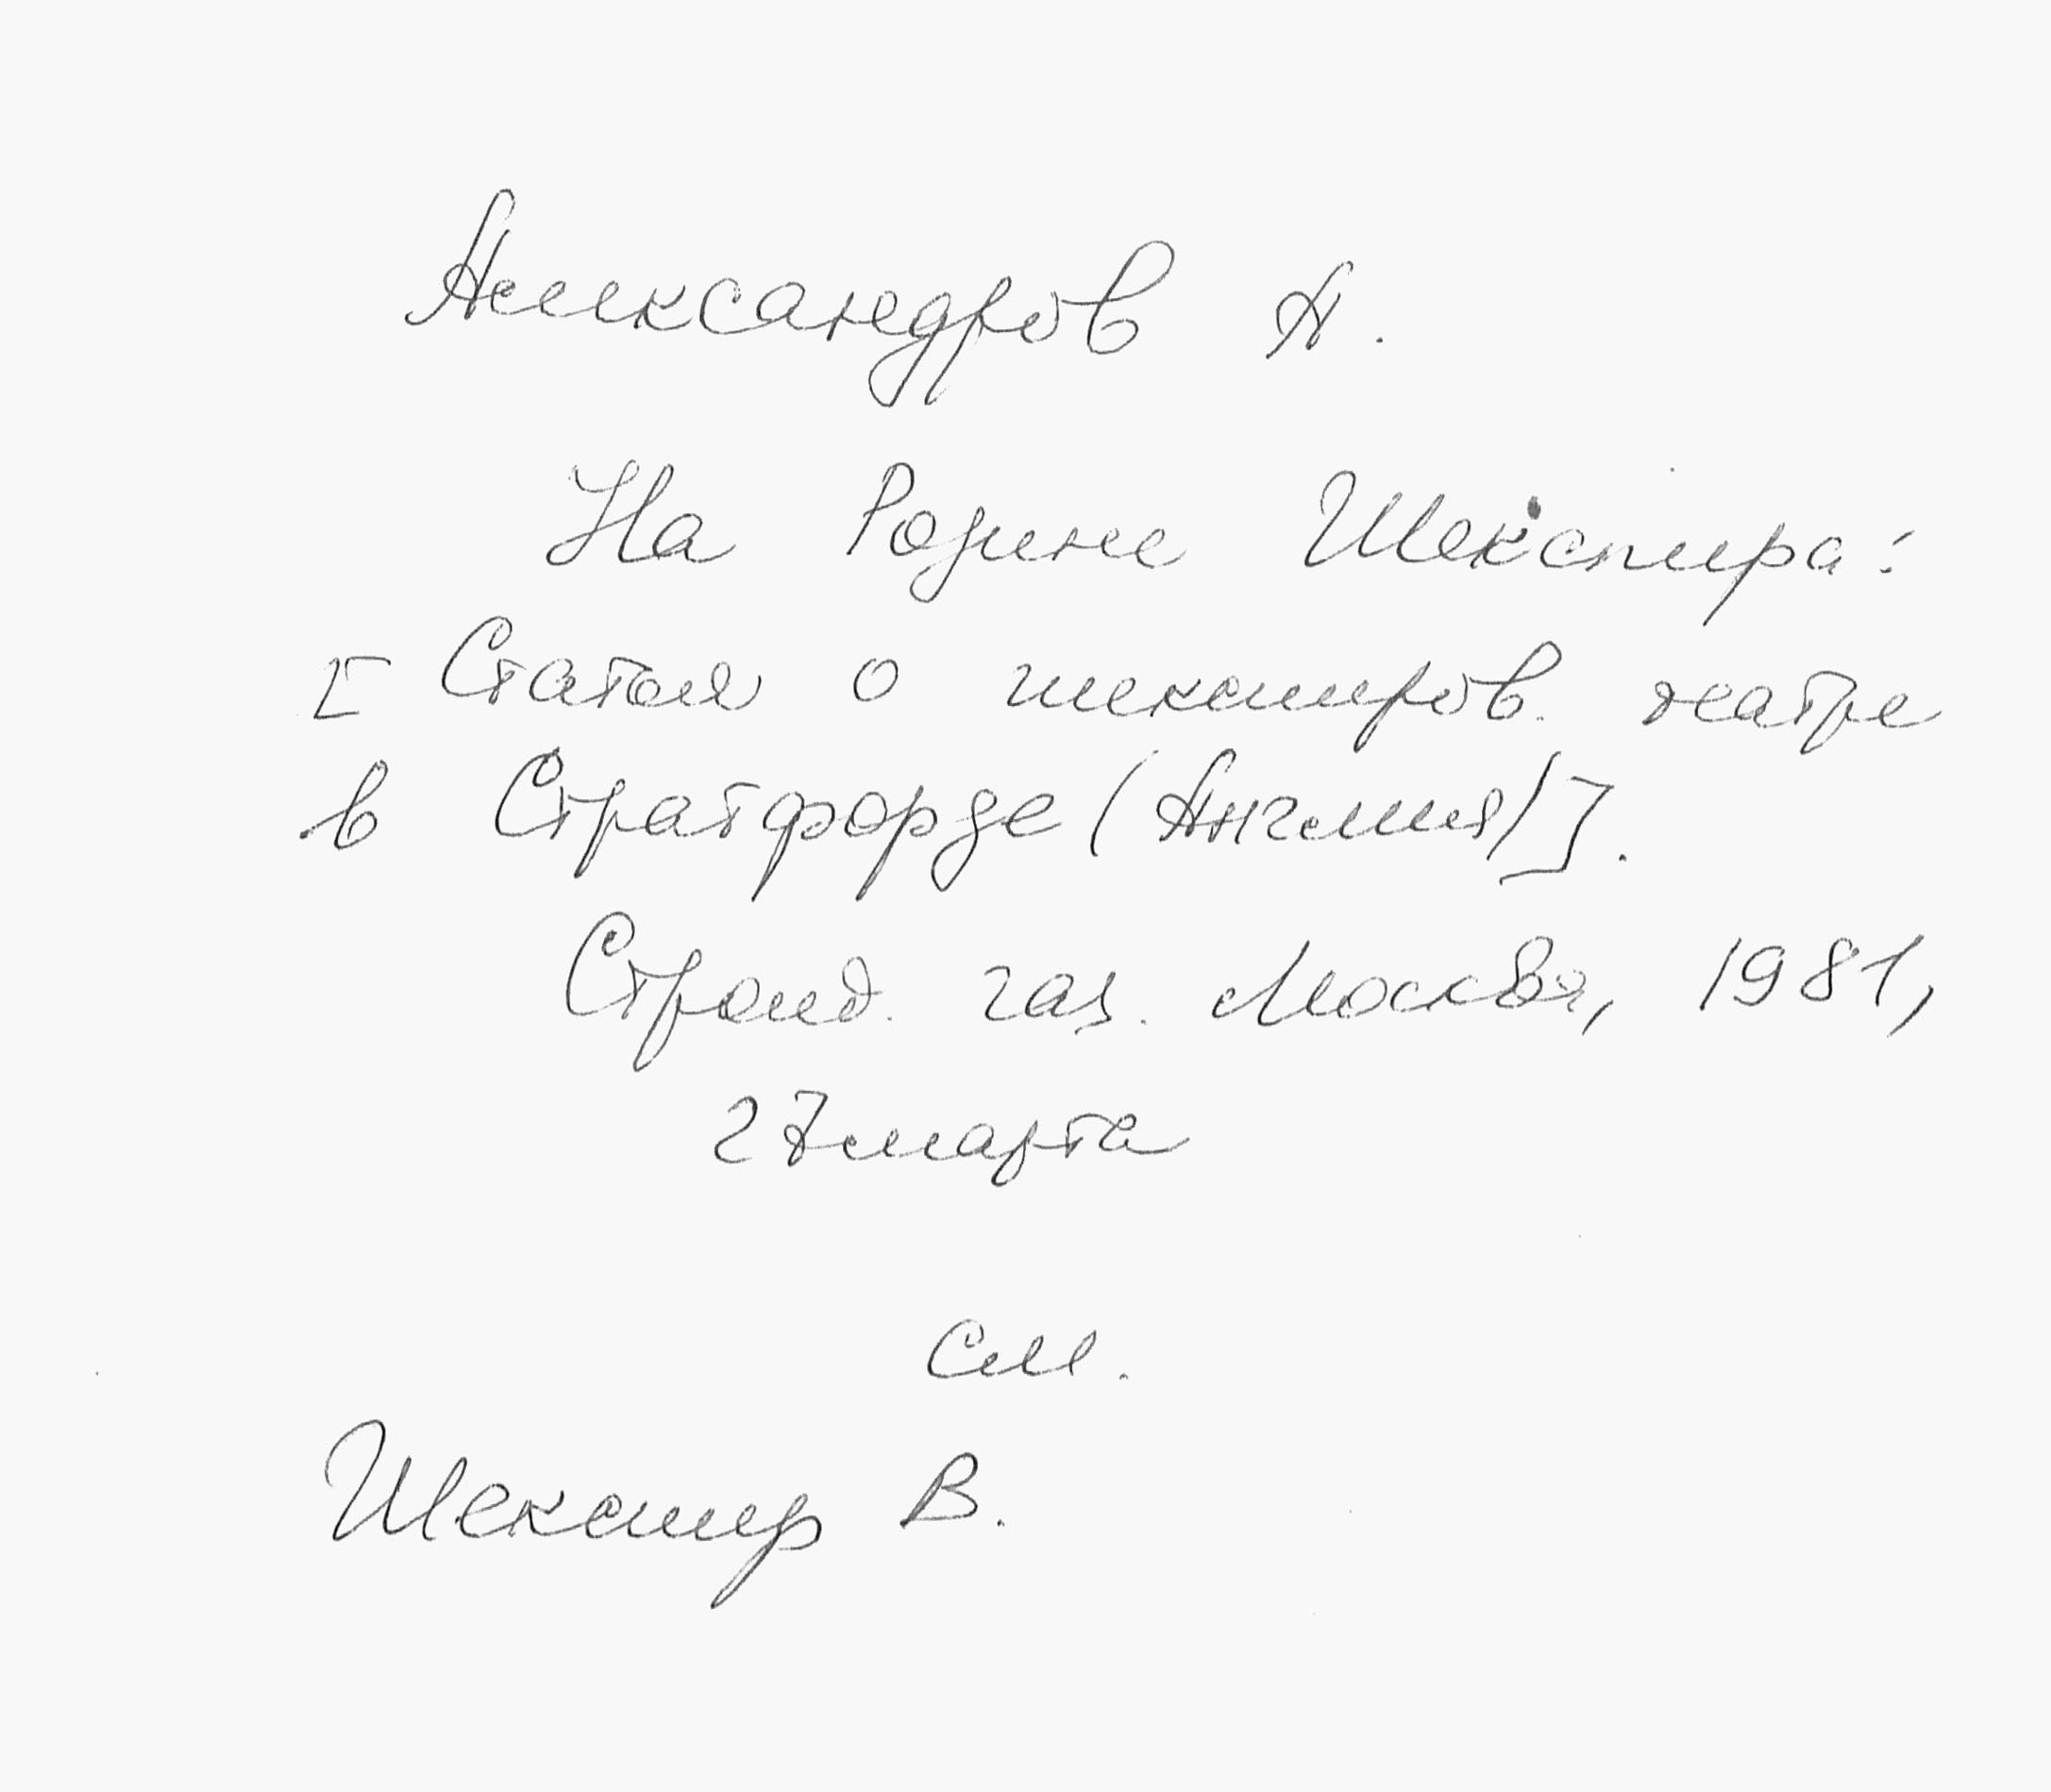 Александров А.
На Родине Шекспира:
[Статья о шекспиров. театре
в Стратфорде (Англия)].
Строит. газ. Москва, 1981,
27 марта
См.
Шекспир В.